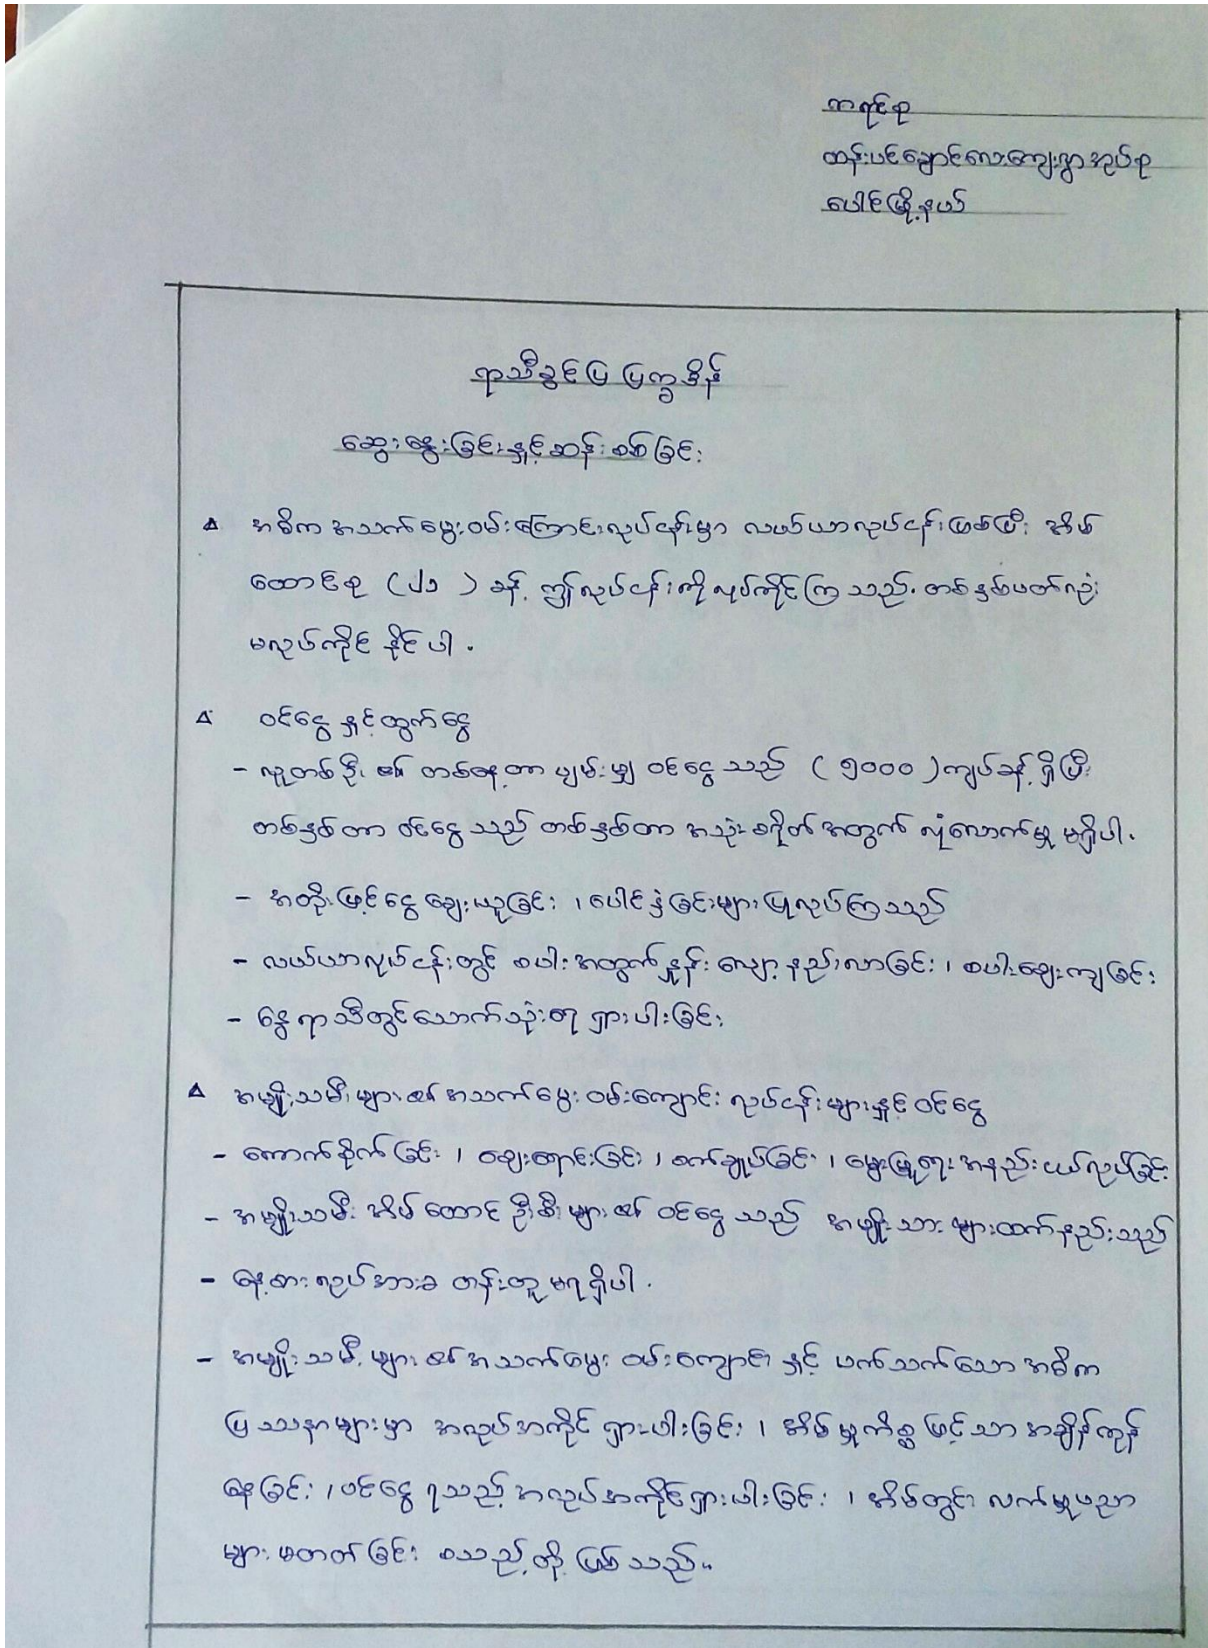 ကရင်စု
ထန်းပင်ချောင်လေးကျေးရွာအုပ်စု
ပေါင်မြို့နယ်
ရာသီခွင်ပြ ပြက္ခဒိန်
ဆွေးနွေးခြင်းနှင့်ဆန်းစစ်ခြင်း
အဓိက အသက်မွေးဝမ်းကြောင်းလုပ်ငန်းမှာ လယ်ယာလုပ်ငန်းဖြစ်ပြီး အိမ်
ထောင်စု (၂၁) ခန့် ဤလုပ်ငန်းကိုလုပ်ကိုင်ကြသည်. တစ်နှစ်ပတ်လုံး
မလုပ်ကိုင်နိုင်ပါ.
ဝင်ငွေနှင့်ထွက်ငွေ
- လူတစ်ဦး၏ တစ်နေ့တာ ပျမ်းမျှ ဝင်ငွေသည် (၅၀၀၀) ကျပ်ခန့်ရှိပြီး
တစ်နှစ်တာ ဝင်ငွေသည် တစ်နှစ်တာ အသုံးစရိတ်အတွက် လုံလောက်မှု မရှိပါ.
- အတိုးဖြင့်ငွေချေးယူခြင်း ၊ ပေါင်နှံခြင်းများပြုလုပ်ကြသည်
- လယ်ယာလုပ်ငန်းတွင် စပါးအထွက်နှုန်းလျော့နည်းလာခြင်း ၊ စပါးဈေးကျခြင်း
- နွေရာသီတွင်သောက်သုံးရေ ရှားပါးခြင်း
အမျိုးသမီးများ၏ အသက်မွေး ဝမ်းကျောင်း လုပ်ငန်းများနှင့် ဝင်ငွေ
- ကောက်စိုက်ခြင်း ၊ ဈေးရောင်းခြင်း ၊ စက်ချုပ်ခြင်း ၊ မွေးမြူရေး အနည်းငယ်လုပ်ခြင်း
- အမျိုးသမီး အိမ်ထောင်ဦးစီးများ၏ ဝင်ငွေသည် အမျိုးသားများထက်နည်းသည်
- နေ့စားလုပ်အားခ တန်းတူ မရရှိပါ.
- အမျိုးသမီးများ၏ အသက်မွေး ဝမ်းကျောင်း နှင့် ပက်သက်သော အဓိက
ပြဿနာများမှာ အလုပ်အကိုင်ရှားပါးခြင်း ၊ အိမ်မှုကိစ္စဖြင့်သာ အချိန်ကုန်
နေခြင်း ၊ ဝင်ငွေရသည့် အလုပ်အကိုင်ရှားပါးခြင်း ၊ အိမ်တွင်း လက်မှုပညာ
များ မတတ်ခြင်း စသည့်တို့ ဖြစ်သည်။